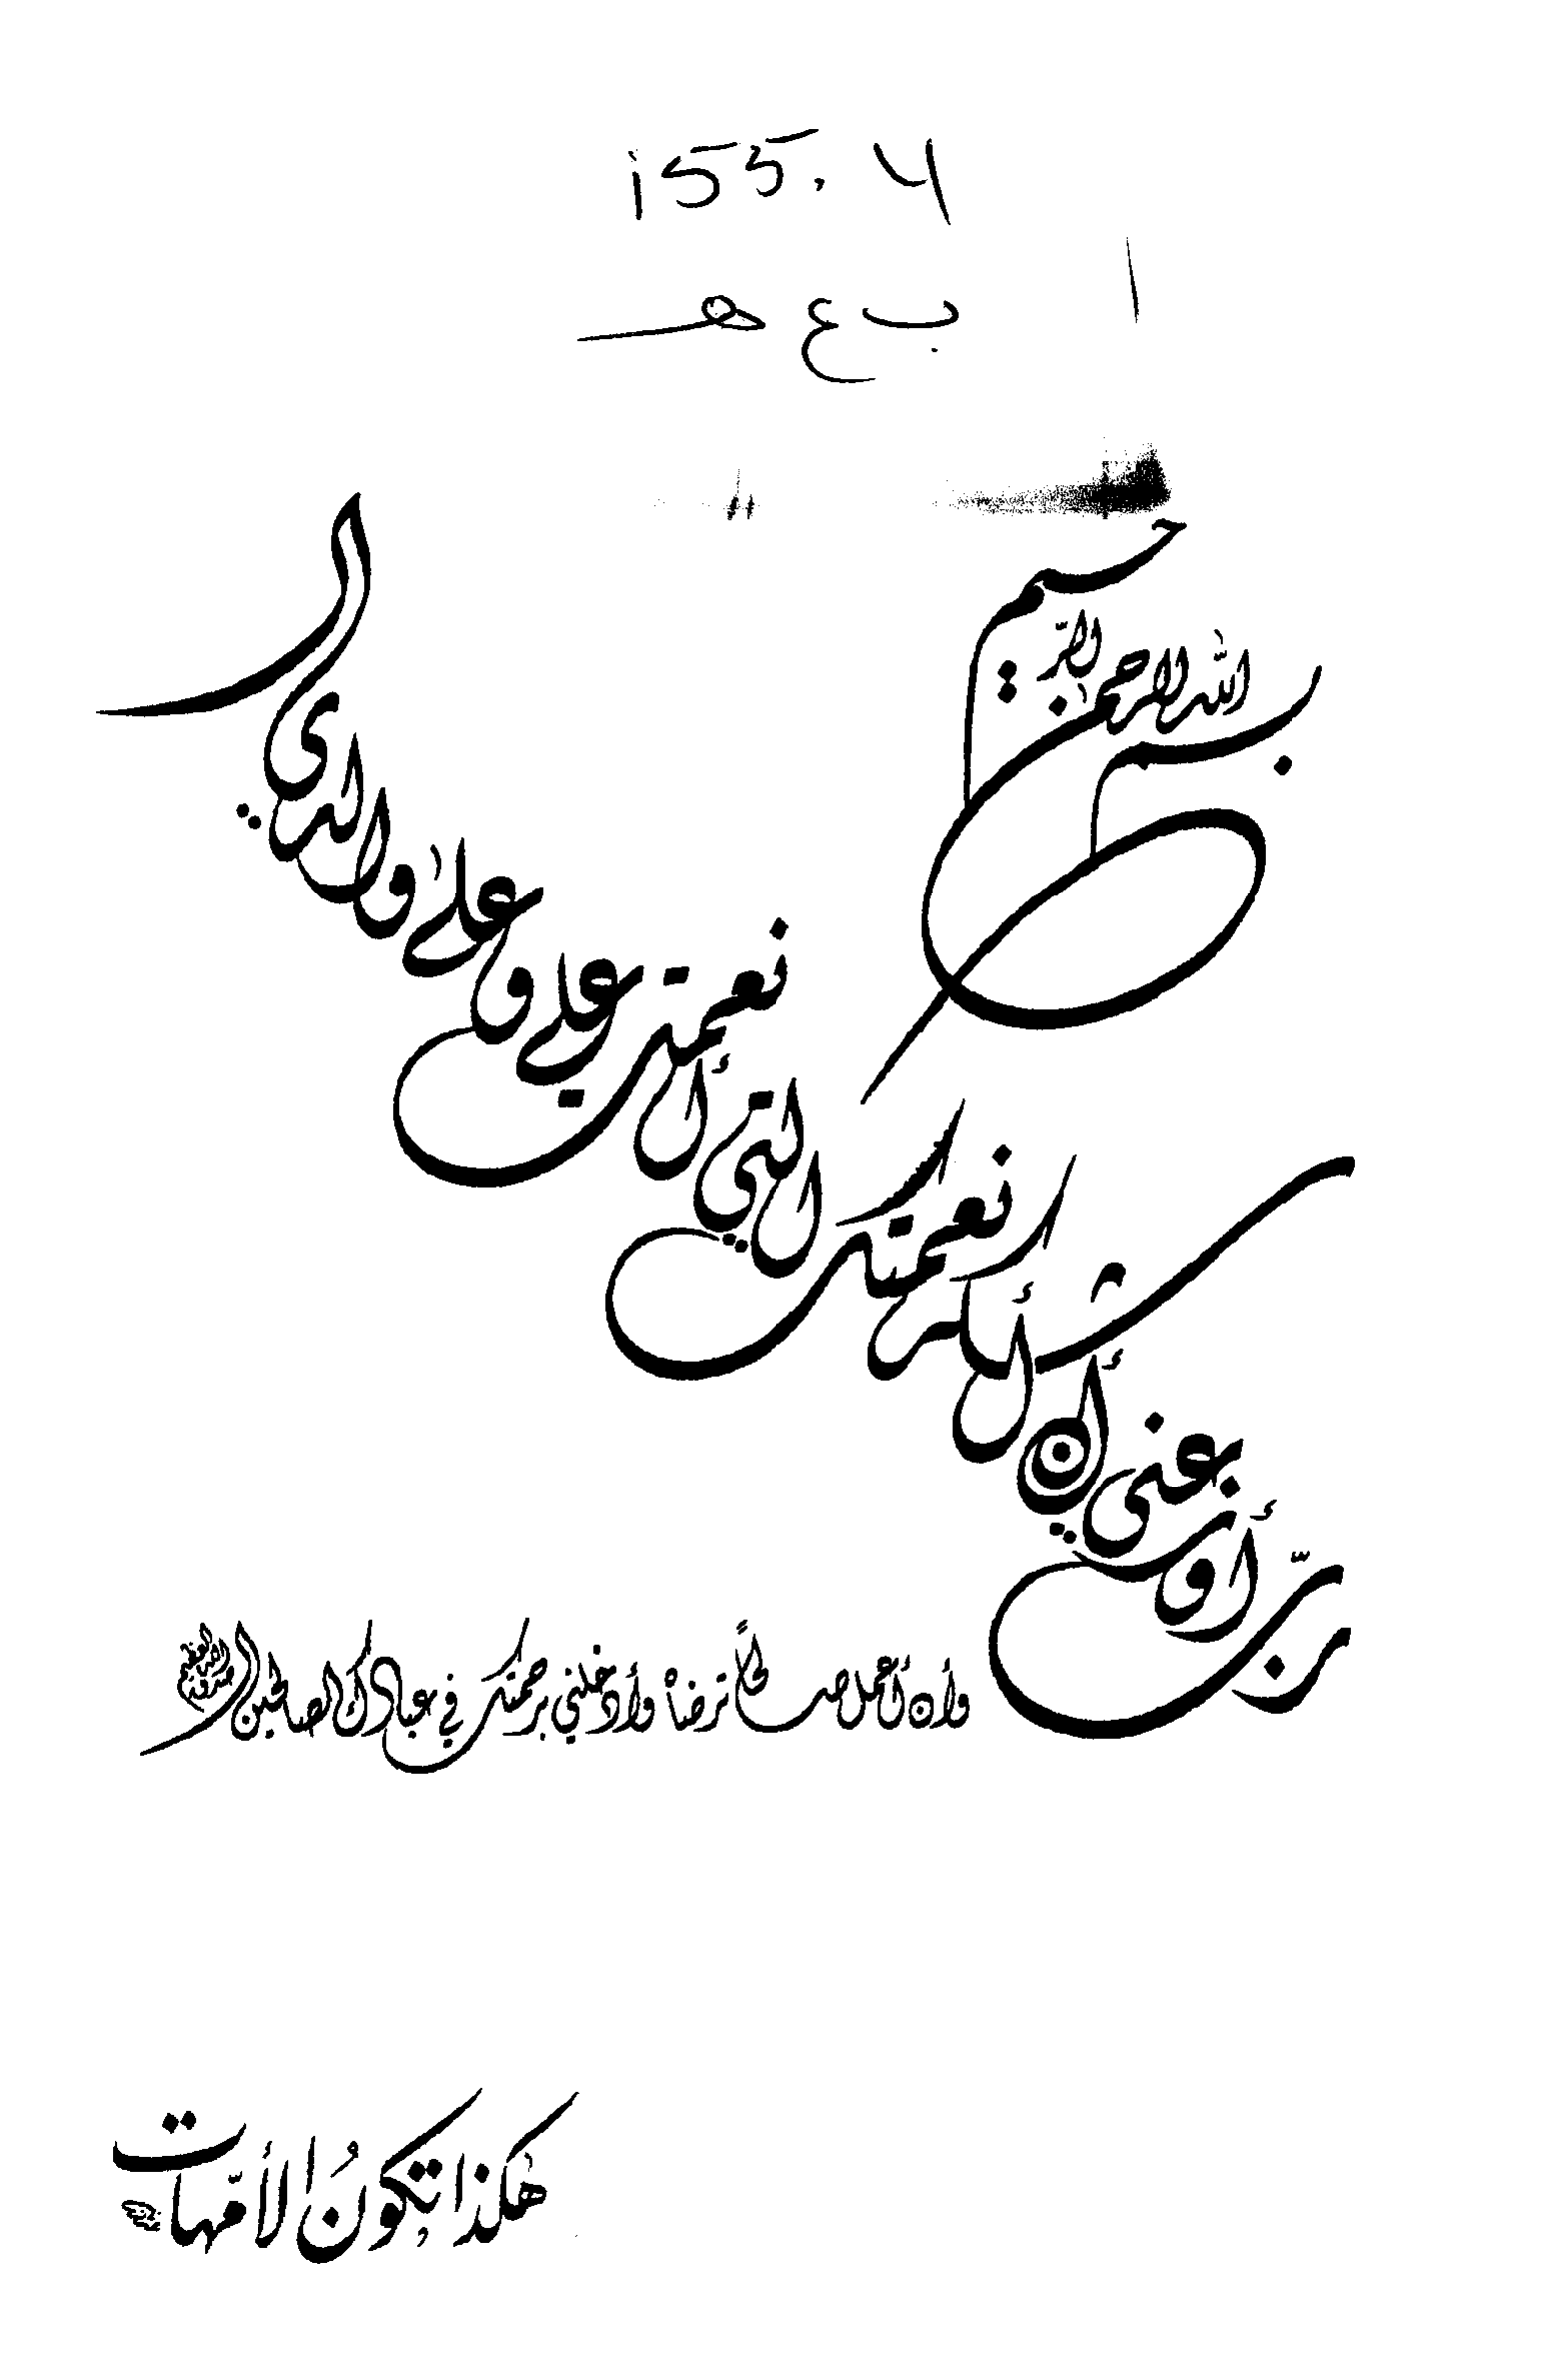 155.6
ب ع هـ
بسم الله الرحمن الرحيم
رب أوزعني أن أشكر نعمتك التي أنعمت علي وعلى والدي
وأن أعمل صالحاً ترضاه وأدخلني برحمتك في عبادك الصالحين
صدق الله العظيم
هكذا تكونُ الأمّهات